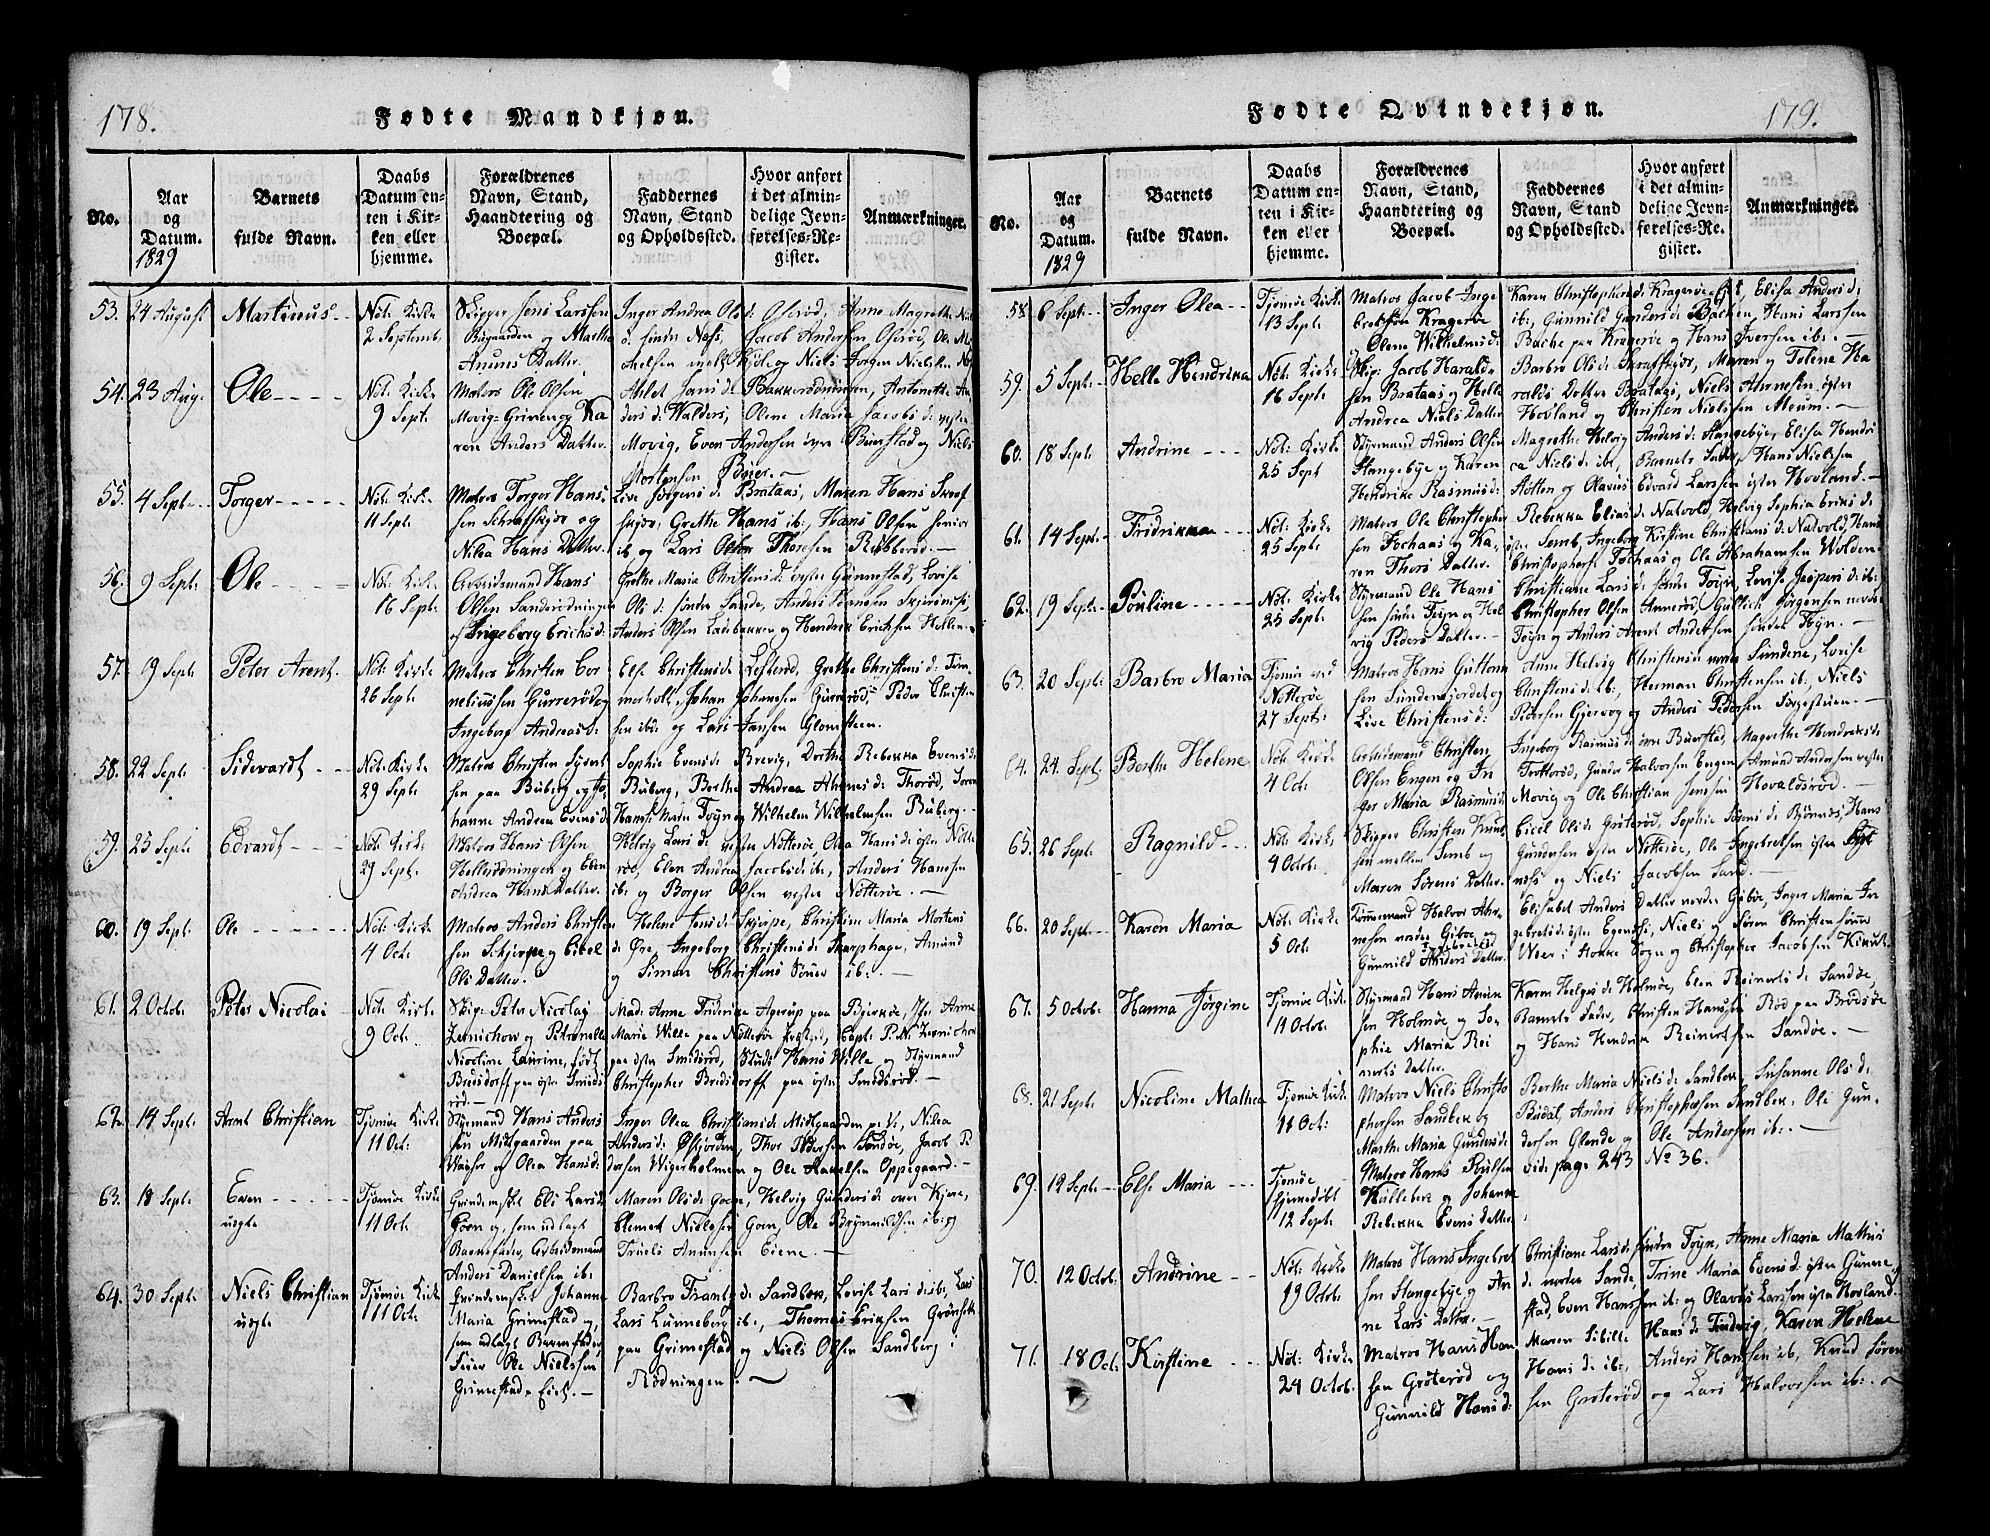 178.
Fødte Mandkjøn.
No.
Aar
og
Datum.
1829
Barnets
fulde Navn.
Daabs
Datum en-
ten i Kir-
ken eller
hjemme.
Forældrenes
Navn, Stand,
Haandtering og
Boepæl.
Faddernes
Navn, Stand
og Opholdssted.
Hvor anført
i det almin-
delige Jevn-
førelses-Re-
gister.
Anmærkninger.
53. 24 August
Martinus
Nöt: Kirke
2 Septemb.
Skipper Jens Larssen
Bugaarden og Marthe
Anuns Datter
54. 23 Aug:
Ole
Nöt: Kirke
9 Sept:
Matros Ole Olsen
Movig-Griven og Ka
ren Anders Datter
Mortensen Bøier.
55. 4 Sept
Torger
Nöt: Kirke
11 Sept:
Matros Torger Hans
sen Schrafskjør og
Nilea Hans Datter
Live Jörgens d: Brataas, Maren Hans Skraf
skjör, Grethe Hans ib:, Hans Olsen senior
ib og Lars Olsen Thoresen Rubberød.
56. 9 Sept:
Ole
Nöt: Kirke
16 Sept:
Arbeidsmand Hans
Olsen Sanderødningen
og Ingeborg Erichs d:
Grethe Maria Christens d: vester Gunnestad, Lovise
Ols d: söndre Sande, Anders
Anders Olsen Laubakken og Hendrik Ericksen Hellen
57. 19 Sept
Peter Arent
Nöt: Kirke
26 Sept:
Matros Christen Cor
neliussen Gurrerød og
Ingeborg Andreas d:
Else Christens d: Lofterød, Grethe Christens d: Tom
merholt, Johan Johansen Gurrerød, Peder Christen
sen ibd: og Lars Jansen Glomsteen.
58. 22 Sept:
Sidevardt
Nöt: Kirke
29 Sept:
Matros Christen Syvert
sen paa Buberg og Jo
hanne Andrea Evens d:
Sophie Evens d: Brevig, Dorthe Rebekka Evens d:
Buberg, Berthe Andrea Ahrnes d: Thorød, Søren
Hans: Munk Toyn og Wilhelm Wilhelmsen Buberg
59. 25 Sept:
Edvardt
Nöt: Kirke
29 Sept:
Matros Hans Olsen
Hellerödningen og Elen
Andrea Hans Datter.
Helvig Lars d: vester Nötteröe, Olea Hans d: öster Nötte
röe, Elen Andrea Jacobs d: ib:, Anders Hansen
ib: og Borger Olsen vester Nötteröe.
60. 19 Sept:
Ole
Nöt: Kirke
4 Oct:
Matros Anders Christen
sen Schjerpe og Cicel
Ols Datter
Helene Jens d: Skjerpe, Christine Maria Mortens
d: Øre, Ingeborg Christens d: Skarphage, Amund
og Simon Christens Sönner ib:
61. 2 Octob:
Peter Nicolai
Nöt: Kirke
9 Oct:
Skip: Peter Nicolay
Zernichow og Petronelle
Nicoline Laurine, født
Bredsdorff paa öster Smids
röd.
Mad: Anne Fridrike Agerup paa Bjerkøe, Jfr: Anne
Marie Wille paa Nötteröe Prgstgd, Capt: P. N. Zernichow
paa östre Smidsröd, Stud: Hans Wille og Styrmand
Christopher Bredsdorff paa öster Smidsröd.
62. 14 Sept:
Arnt Christian
Tjömöe Kirke
11 Oct:
Styrmand Hans Anders
sen Midtgaarden paa
Wasser og Olea Hans d:
Inger Olea Christians d: Midtgaarden pa V:, Nilea
Anders d: Østjorden, Thor Pedersen Sandöe, Jacob P
dersen Wigerholmen og Ole Axelsen Oppegaard.
63. 18 Sept:
Even
uægte
Tjömöe Kirke
11 Oct:
Qvindemskt Eli Lars d:
Goen og, som udlagt
Barnefader, Arbeidsmand
Anders Danielsen ib:
Maren Ols d: Goen, Helvig Gunders d: övre Kjære,
Clement Nielssen Goen, Ole Brynnildsen ib: og
Truels Anunsen Eiene.
64. 30 Sept:
Niels Christian
uægte
Tjömöe Kirke
11 Oct:
Qvindemskt Johanne
Maria Grimestad og,
som udlagt Barnefader,
Ole Nielssen
Grimestad-Eiet.
Barbro Frants d: Sandbek, Lovise Lars d: ib:, Lars
Lars Lunneberg ib:, Thomas Eriksen Grönsek
paa Grimestad og Niels Olsen Sandberg i
Rödningen.
179.
Fødte Qvindekjøn.
No.
Aar
og
Datum.
1829
Barnets
fulde Navn.
Daabs
Datum en-
ten i Kir-
ken eller
hjemme.
Forældrenes
Navn, Stand,
Haandtering og
Boepæl.
Faddernes
Navn, Stand
og Opholdssted.
Hvor anført
i det almin-
delige Jevn-
førelses-Re-
gister.
Anmærkninger.
58 6 Sept:
Inger Olea
Tjömöe Kirk:
13 Sept:
Matros Jacob Inge
brektsen Krageröe
Olene Wilhelms d:
Karen Christophers d: Krageröe-Eiet, Elisa Anders d:
ib:, Gunnild Gunders d: Backen, Hans Larssen
Bache paa Krageröe og Hans Iversen ib:
59. 5 Sept:
Helle Hendrika
Nöt: Kirke
16 Sept
Skip: Jacob Harald
sen Brataas og Helle
Andrea Niels Datter
Barbro Ols d: Skrafskjör, Maren og Tolene Ha
ralds Dotter Brataas, Niels Ahrnesen, östre
Hovland og Christen Nielssen Meum.
60. 18 Sept:
Andrine
Nöt: Kirke
25 Sept
Styrmand Anders Olsen
Stangebye og Karen
Hendrike Rasmus d:
Magrethe Helvig Anders d: Stangebye, Elisa Hendri
ca Niels d: ib:, Barnets Fader, Hans Nielssen
Stotten og Olavus Edvard Larssen öster Hovland.
61. 14 Sept:
Fridrikka
Nöt: Kirke
25 Sept:
Matros Ole Christopher
sen Fochaas og Ka
ren Thors Datter.
Rebekka Elias d: Natvold, Helvig Sophia Eriks d:
östre Semb, Ingeborg Kirstine Christians d: Natvold, Hans
Christophers: Fochaas og Ole Abrahamsen Wolden
62. 19 Sept:
Pouline
Nöt: Kirke
25 Sept:
Styrmand Ole Hans
sen söndre Toyn og Hel
vig Peders Datter.
Christiane Lars d: söndre Toyn, Lovise Jespers d: ib:
Christopher Olsen Annerød, Gullich Jörgensen nordre
Toyn og Anders Arent Andersen söndre Toyn.
63. 20 Sept:
Barbro Maria
Tjömöe ved
Nötteröe
27 Sept:
Matros Hans Guttorm
sen Sundenfjordet og
Live Christens d:
Anne Helvig Christens d: Sundene, Lovise
Christens d: ib:, Herman Christensen ib:, Niels
Pedersen Gjervog og Anders Pedersen Bryestuen.
64. 24. Sept:
Berthe Helene
Nöt: Kirke
4 Oct:
Arbeidsmand Christen
Olsen Engen og In
ger Maria Rasmus d
Ingeborg Rasmus d: övre Buerstad, Magrethe Hendriks d:
Trotterød, Gunder Halvorsen Engen, Amund Andersen vestre
Movig og Ole Christian Jensen Hovaldsröd.
65. 26 Sept:
Ragnild
Nöt: Kirke
4 Octob:
Skipper Christen Knud
sen mellem Semb og
Maren Sörens Datter
Cicel Ols d: Gröteröd, Sophie Sörens d: Bjönnes, Hans
Gundersen östre Nötteröe, Ole Ingebretsen östre
næss og Niels Jacobsen Sand.
66. 20 Sept:
Karen Maria
Nöt: Kirke
5 Oct:
Tömmermand Halvor Ahr
nesen nordre Giboe og
Gunnild Anders Datter
Elisabet Anders Datter nordre Giboe, Inger Maria In
gebrets d: östre Egenes, Niels og Sören Christen Sönner
Weer i Stokke Sogn og Christopher Jacobsen
67. 5 Octob:
Hanna Jörgine
Tjömöe Kirk:
11 Octob:
Styrmand Hans Anun
sen Holmöe og So
phie Maria Rei
nerts Datter
Karen Helges d: Holmöe, Elen Reinerts d: Sandöe,
Barnets Fader, Christen Hanssen Röd paa Brödsöe
og Hans Hendrik Reinertsen Sandöe.
68. 21 Sept:
Nicoline Mathea
Tjömöe Kirk
11 Oct:
Matros Niels Christo
phersen Sandbek og
Marthe Maria Gunders d:
Berthe Maria Niels d: Sandbek, Susanne Ols d:
Budal, Anders Christophersen Sandbek, Ole Gun
dersen Glende og Ole Andersen ib:
69. 12 Sept:
Else Maria
Tjömöe
hjemmedöbt
12 Sept:
Matros Hans Poulsen
Kullebek og Johanne
Rebekka Evens Datter
vide page 243 No 36.
70. 12 Octob:
Andrine
Nöt: Kirke
19 Octob:
Matros Hans Ingebret
sen Stangebye og An
ne Lars Datter
Christiane Lars d: söndre Toyn, Anne Maria Mathis
d: nordre Sande, Trine Maria Evens d: öster Gunne
stad, Even Hanssen ib: og Olavus Larssen östre Hovland.
71. 18 Oct:
Kirstine
Nöt: Kirke
24 Octob:
Matros Hans Han
sen Gröteröd og
Gunnild Hans d:
Maren Sibille Hans d: Tindvig, Karen Helene
Hans d: ib:, Anders Hanssen ib:, Knud Sören
sen Gröteröd og Lars Halvorsen ib: